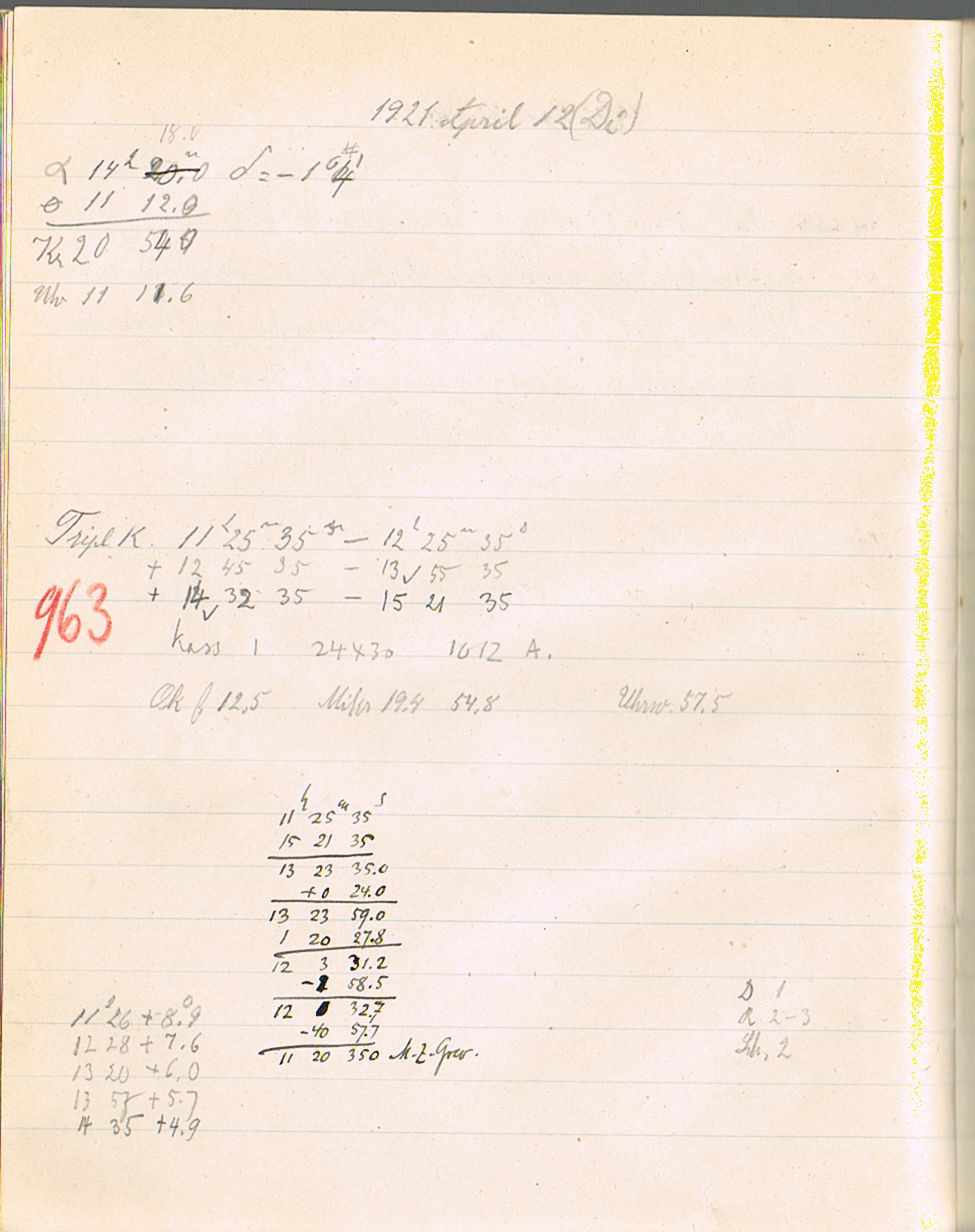 1921 April 12 (Di)
18.0
α 14h 20.m0 δ = -1°4'
θ 11 12.0
Kr 20 54
Uhr 11 11.6
Tripl K. 11h 25m 35s — 12h 25m 35s
+ 12 45 35 — 13 55 35
+ 14 32 35 — 15 21 35
963
Kass 1 24×30 1012 A.
Ok f 12,5 Mikr 19.4 54,8 Uhrw. 57.5
11h 25m 35s
15 21 35
13 23 35.0
+0 24.0
13 23 59.0
1 20 27.8
12 3 31.2
58.5
12 32.7
-40 57.7
11 20 35.0 M.Z. Grw.
11h 26 + 8.°9
12 28 + 7.6
13 20 + 6,0
13 57 + 5.7
14 35 + 4.9
D 1
R. 2–3
Sch. 2